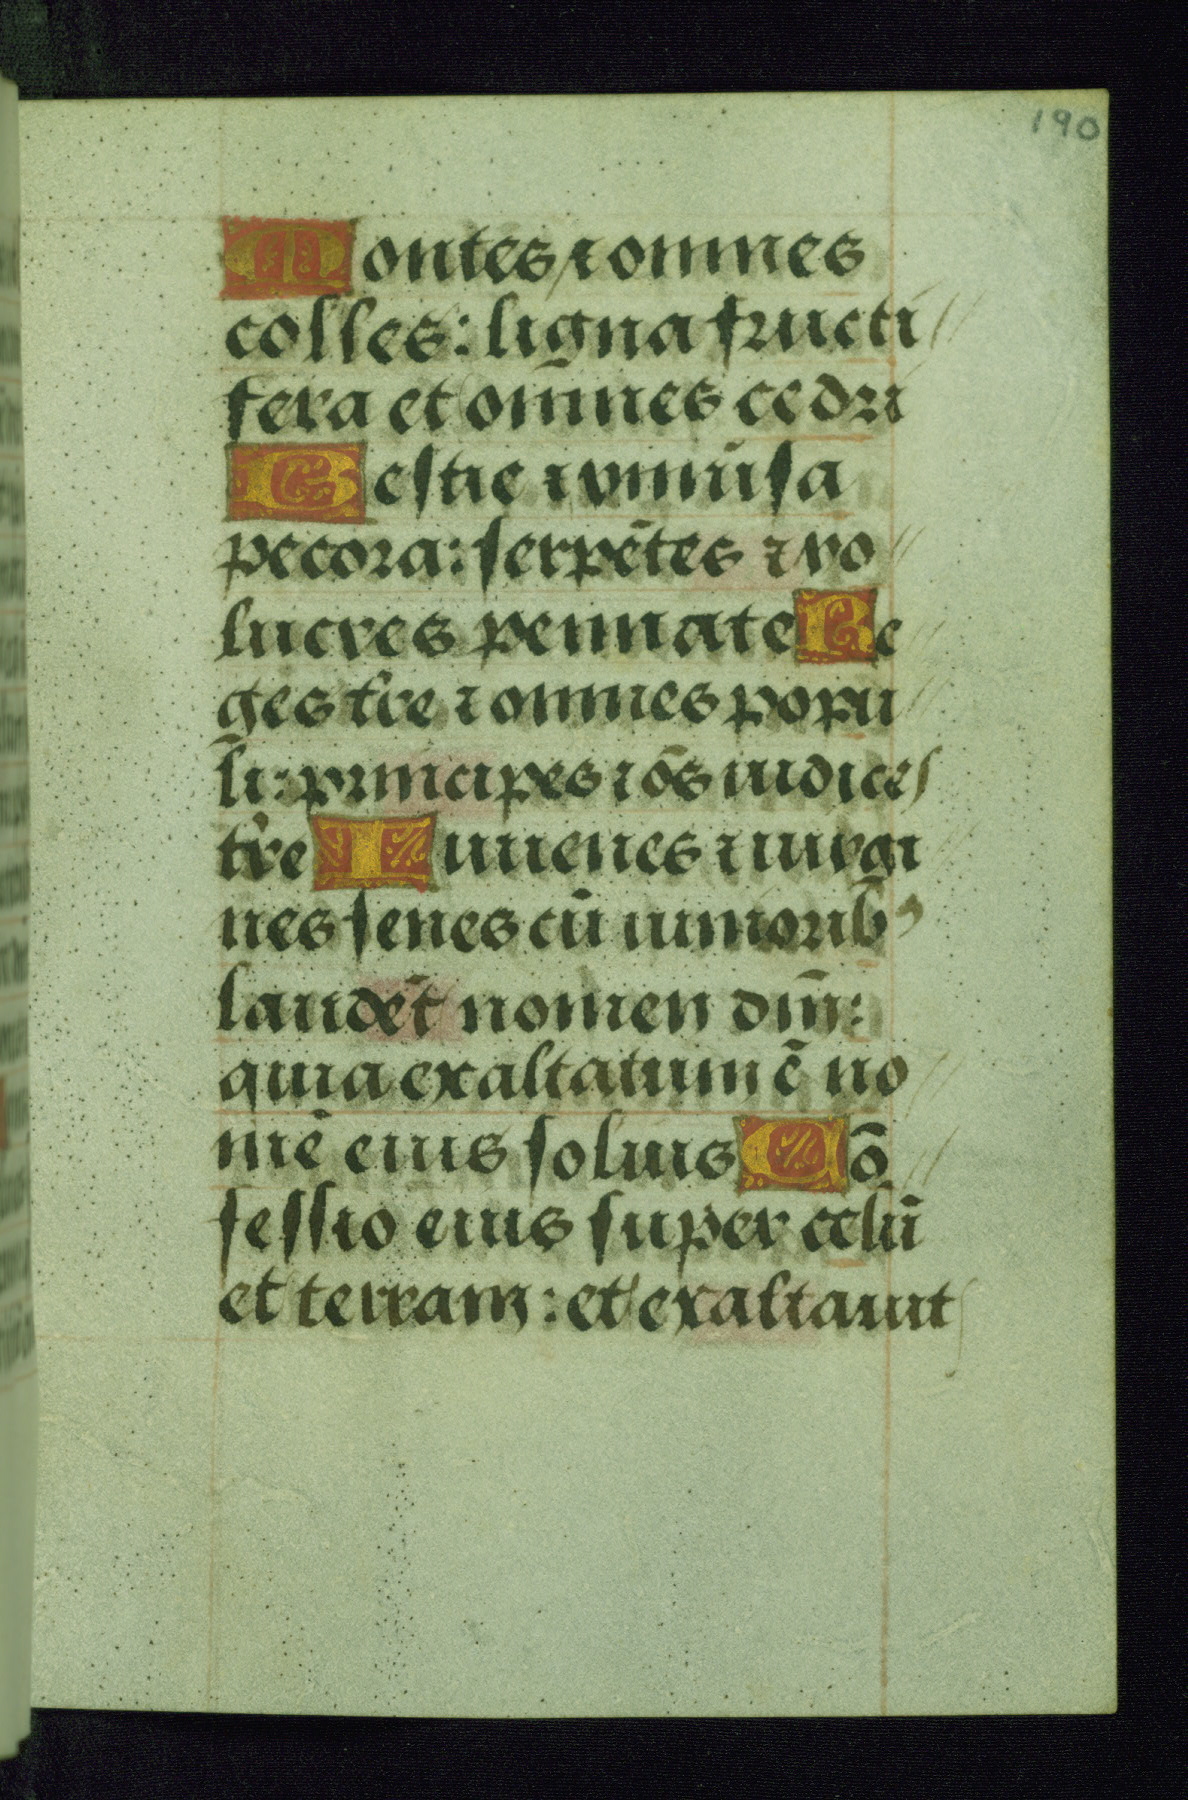 190
Montes ⁊ omnes
colles: ligna fructi
fera et om̄nes cedri
Bestie ⁊ vniūsa
pecora: serpētes ⁊ vo
lucres pennate Re
ges t̄re ⁊ omnes popu
li: principes ⁊ ōs iudices
t̄re Iuuenes ⁊ uirgi
nes senes cū iunioribꝰ
laudēt nomen dn̄i:
quia exaltatum ē no
mē eius solius Cō
fessio eius super celū
et terram: et exaltauit